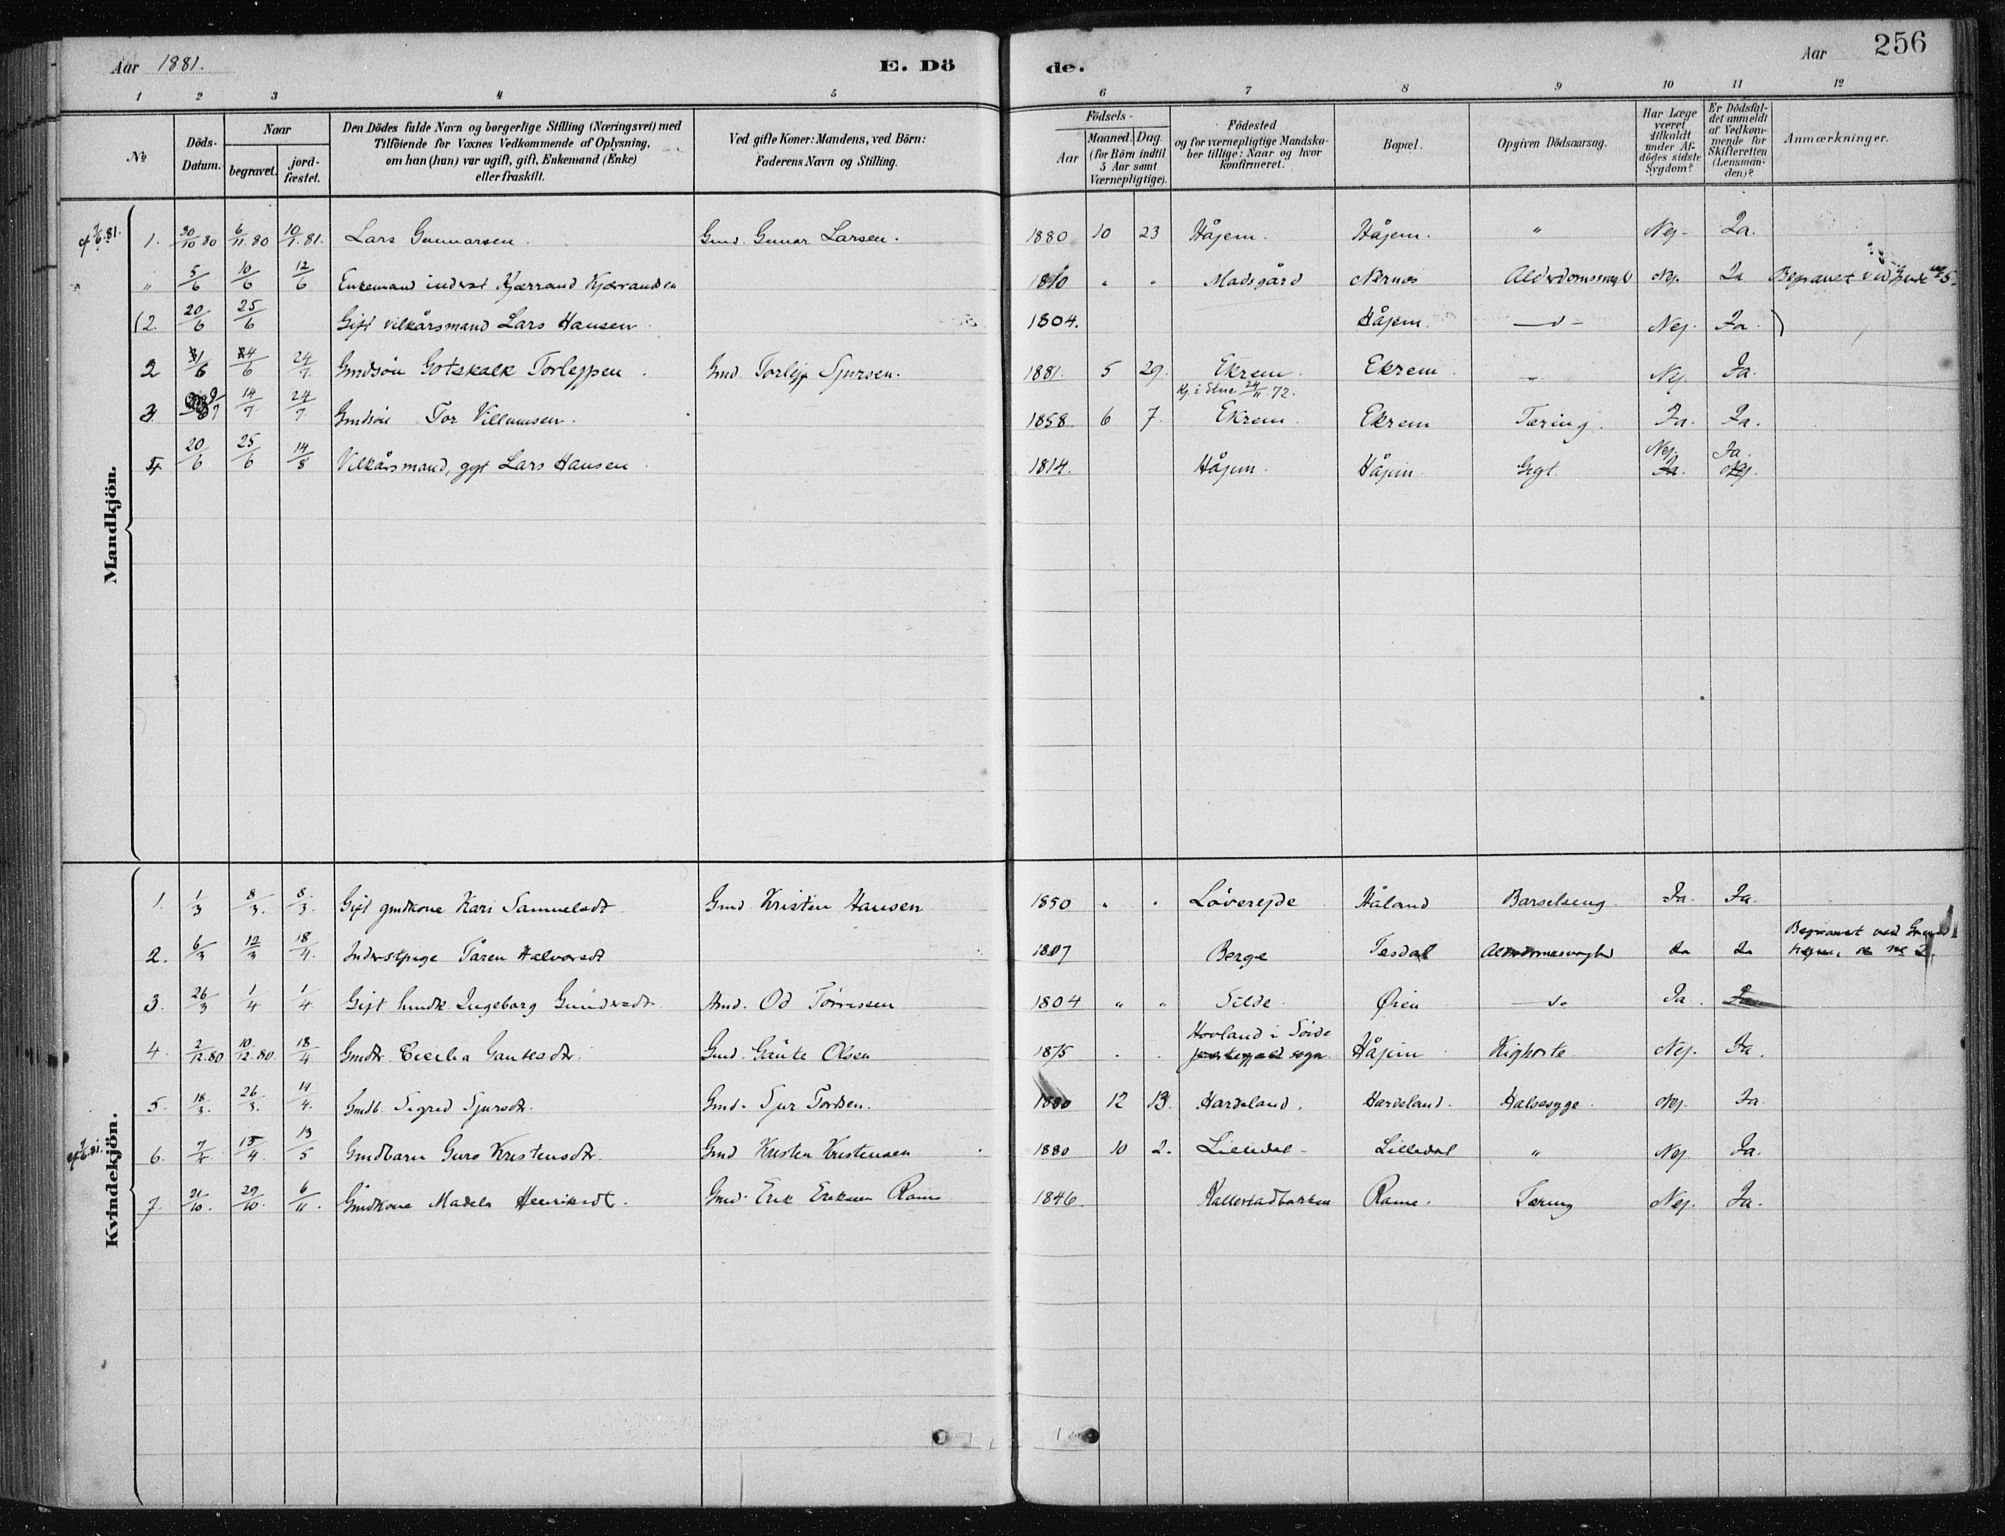 Aar 1881.
E. Dö de.
Aar
256
1 2 3 4 5 6 7 8 9 10 11 12
No
Döds-Datum.
Naar
begravet.
jord-fæstet.
Den Dödes fulde Navn og borgerlige Stilling (Næringsvei) med
Tilföiende for Voxnes Vedkommende af Oplysning,
om han (hun) var ugift, gift, Enkemand (Enke)
eller fraskilt.
Ved gifte Koner: Mandens, ved Börn:
Faderens Navn og Stilling.
Födsels-
Aar
Maaned. Dag.
(for Börn indtil
5 Aar samt
Værnepligtige).
Födested
og for værnepligtige Mandska-
ber tillige: Naar og hvor
konfirmeret.
Bopæl.
Opgiven Dödsaarsag.
Har Læge
været
tilkaldt
under Af-
dödes sidste
Sygdom?
Er Dödsfal-
det anmeldt
af Vedkom-
mende for
Skifteretten
(Lensman-
den)?
Anmærkninger.
Mandkjön.
1. 30/10 80 6/11 80 10/1. 81. Lars Gunnarsen. Gmd. Gunar Larsen. 1880 10 23 Håjem. Håjem. " Nej. Ja.
" 5/6 10/6 12/6 Enkemand inderst Kjærrand Kjærrandsen 1810 " " Madsgård Nernes Alderdomssvagh Nej. Ja Begravet ved
(2. 20/6 25/6 Gift vilkårsmand Lars Hansen 1804. Håjem. -d- Nej. Ja. )
2 1/6 4/6 24/7 Gmdsön Gotskalk Torlejpsen. Gmd. Torlejp Sjursen. 1881. 5 29. Ekrem. Ekrem Nej Ja.
Kf. i Etne 24/11 72.
3. 14/7 24/7 Gmdsön Tor Villumsen. 1858. 6 7. Ekrem. Ekrem Tæring. Ja. Ja.
4. 20/6 25/6 14/8 Vilkårsmand, gift Lars Hansen 1814. Håjem. Håjem. Gigt. Nej. Ja.
Ja. Nej.
Kvindekjön.
1. 1/3 8/3. 8/3. Gift gmdkone Kari Samuelsdt. Gmd. Kristen Hansen 1850 " " Løverejde Håland Barselseng Ja. Ja.
2. 6/3 12/3 18/4. Inderstpige Tåren Halvorsdt 1807 Berge Tesdal Alderdomssvaghed Ja Ja Begravet ved
3. 26/3 1/4 1/4 Gift hmdk. Ingeborg Gundersdt. Hmd. Od Tørresen 1804 " " Silde. Øien -d- Ja. Ja
4. 2/12. 80 10/12. 80. 18/4 Gmdtr. Cecilia Gautesdtr. Gmd. Gaute Olsen 1875 . . Hovland i Søvde
sogn. Håjem Kighoste. Nej. Ja.
5. 18/3. 26/3. 14/4. Gmdb. Sigrid Sjursdt. Gmd. Sjur Tordsen. 1880 12 13. Hardeland. Hardeland. Halsesyge. Nej. Ja.
6. 7/4 15/4 13/5 Gmdbarn Guro Kristensdtr. Gmd Kristen Kristensen 1880 10 2. Lilledal Lilledal " Nej Ja.
7. 21/10. 29/10. 6/11. Gmdkone Madela Henriksdt. Gmd. Erik Eriksen Rame 1846. Kallestadbakken Rame. Tæring Nej. Ja.